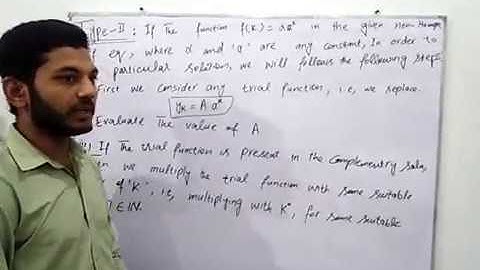 Type-II : If The function f(k) = αa^k in the given non-Homogen
eq, where α and 'a' are any constant, In order to
particular solution, we will follows the following steps
First we consider any trial function, i.e, we replace.
y_k = A a^k
Evaluate The value of A
If The trial function is present in the complementry solu,
we multiply the trial function with some suitable
of 'k', i.e, multiplying with k^n, for some suitable
∈ IN.